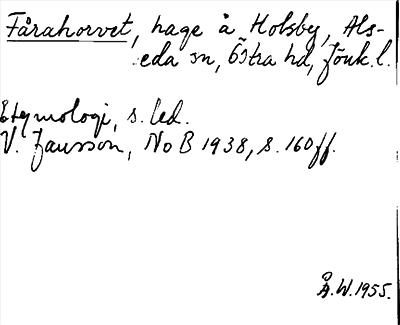 Fårahorvet, hage å Holsby, Als-
eda sn, Östra hd, Jönk. l.
Etymologi, s. led.
V. Jansson, NoB 1938, s. 160 ff.
Å.W. 1955.